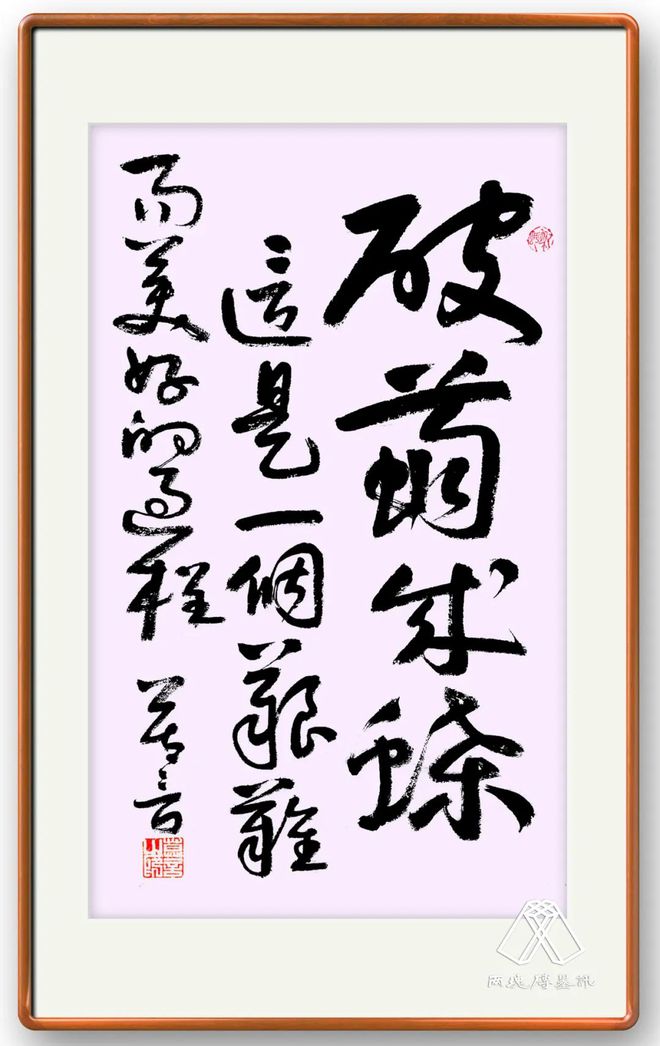 破繭成蝶
這是一個艱難
而美好的過程 莫言
两塊磚墨訊